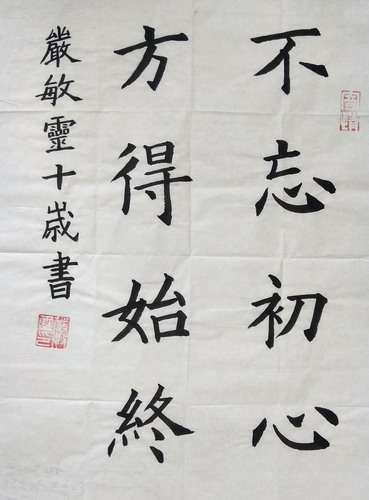 不忘初心
方得始終
嚴敏靈十歲書